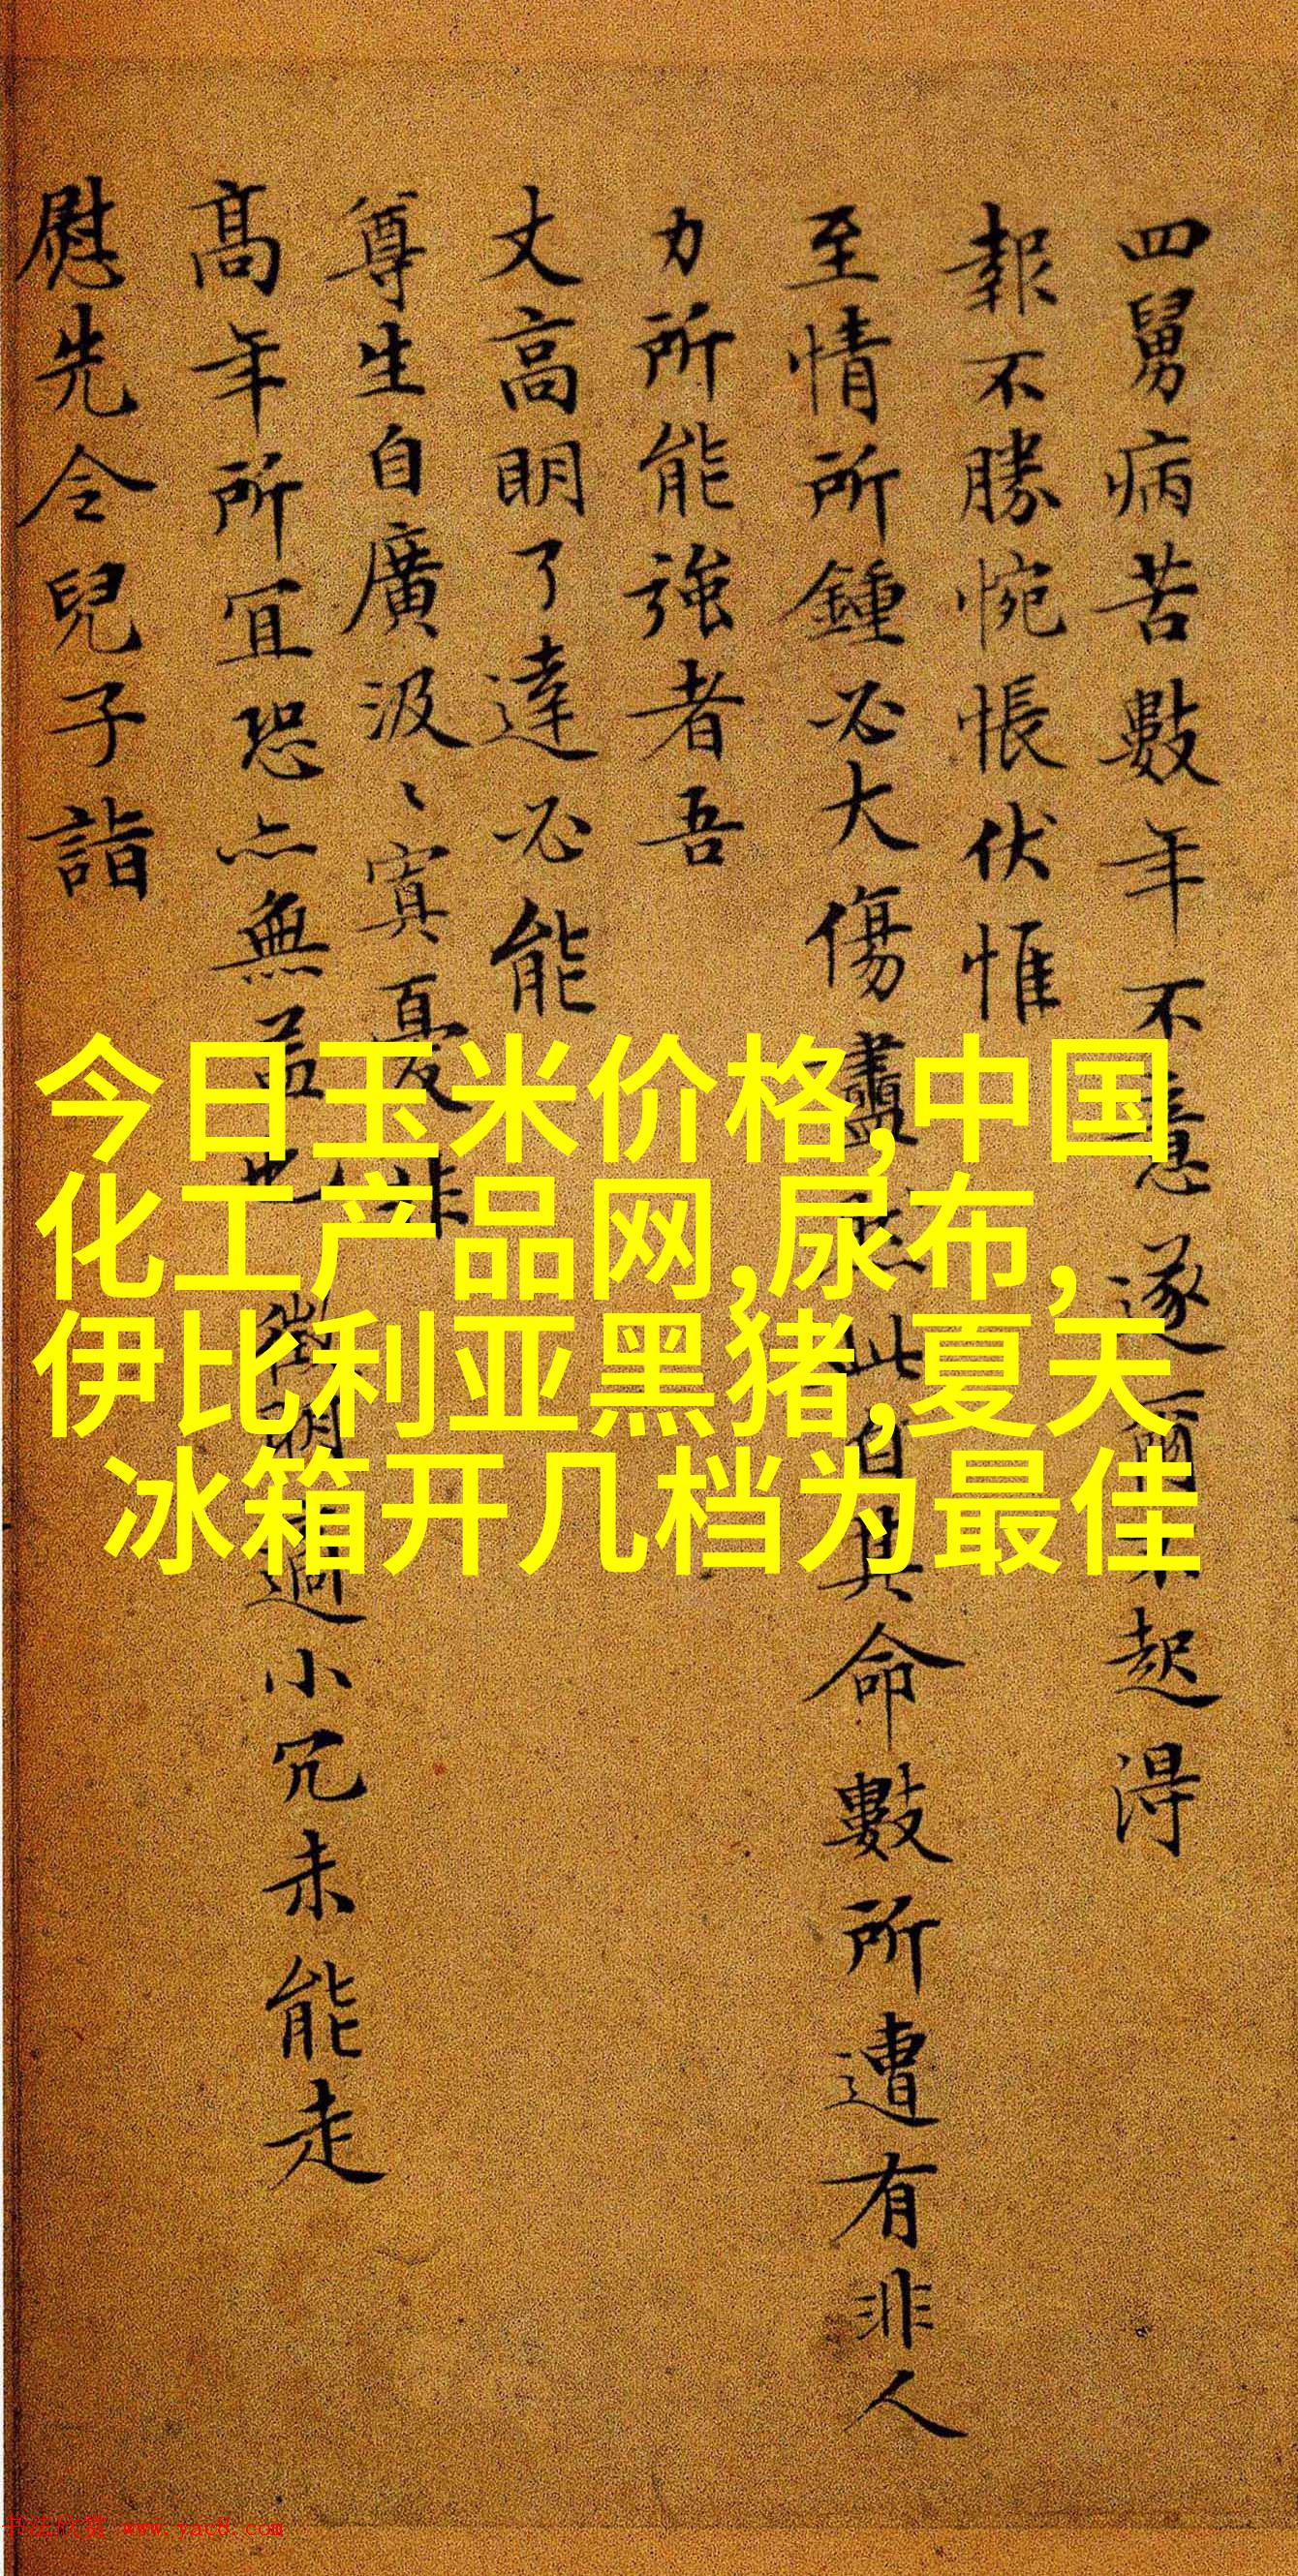 四舅病苦數年不意遂爾不起淂
報不勝惋悵伏惟
至情所鍾必大傷盡此自其命數所遭有非人
力所能強者吾
丈高明了達必能
尊生自廣汲〻寘憂非
高年所宜恐亦無益也明過小冗未能走
慰先令兒子詣
今日玉米价格,中国
化工产品网,尿布,
伊比利亚黑猪,夏天
冰箱开几档为最佳
书法欣赏 www.yac8.com